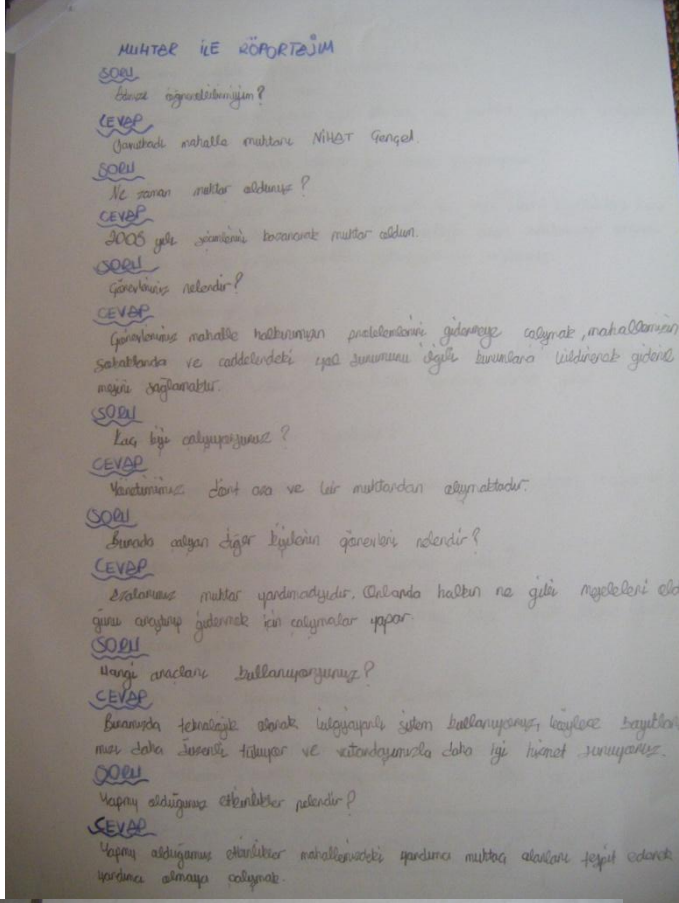 MUHTAR İLE RÖPORTAJIM
SORU
öğrenebilirmiyim?
CEVAP
mahalle muhtarı NİHAT Gençel.
SORU
Ne zaman muhtar oldunuz?
CEVAP
yılı seçimlerini kazanarak muhtar oldum.
SORU
Görevleriniz nelerdir?
CEVAP
Görevlerimiz mahalle halkımızın problemlerini gidermeye çalışmak, mahallemizin
sokaklarında ve caddelerdeki yol sorununu ilgili bildirerek gideril
mesini sağlamaktır.
SORU
Kaç kişi çalışıyorsunuz?
CEVAP
Yönetimimiz dört aza ve bir muhtardan oluşmaktadır.
SORU
Burada çalışan diğer kişilerin görevleri nelerdir?
CEVAP
Azalarımız muhtar yardımcısıdır. Onlarda halkın ne gibi meseleleri oldu
ğunu araştırıp gidermek için çalışmalar yapar.
SORU
Hangi araçları kullanıyorsunuz?
CEVAP
Buramızda teknolojik olarak bilgisayarlı sistem kullanıyoruz, böylece kayıtları
mızı daha düzenli tutuyor ve vatandaşımızla daha iyi hizmet sunuyoruz.
SORU
Yapmış olduğunuz etkinlikler nelerdir?
CEVAP
Yapmış olduğumuz etkinlikler mahallemizdeki yardıma muhtaç olanları tespit ederek
yardımcı olmaya çalışmak.